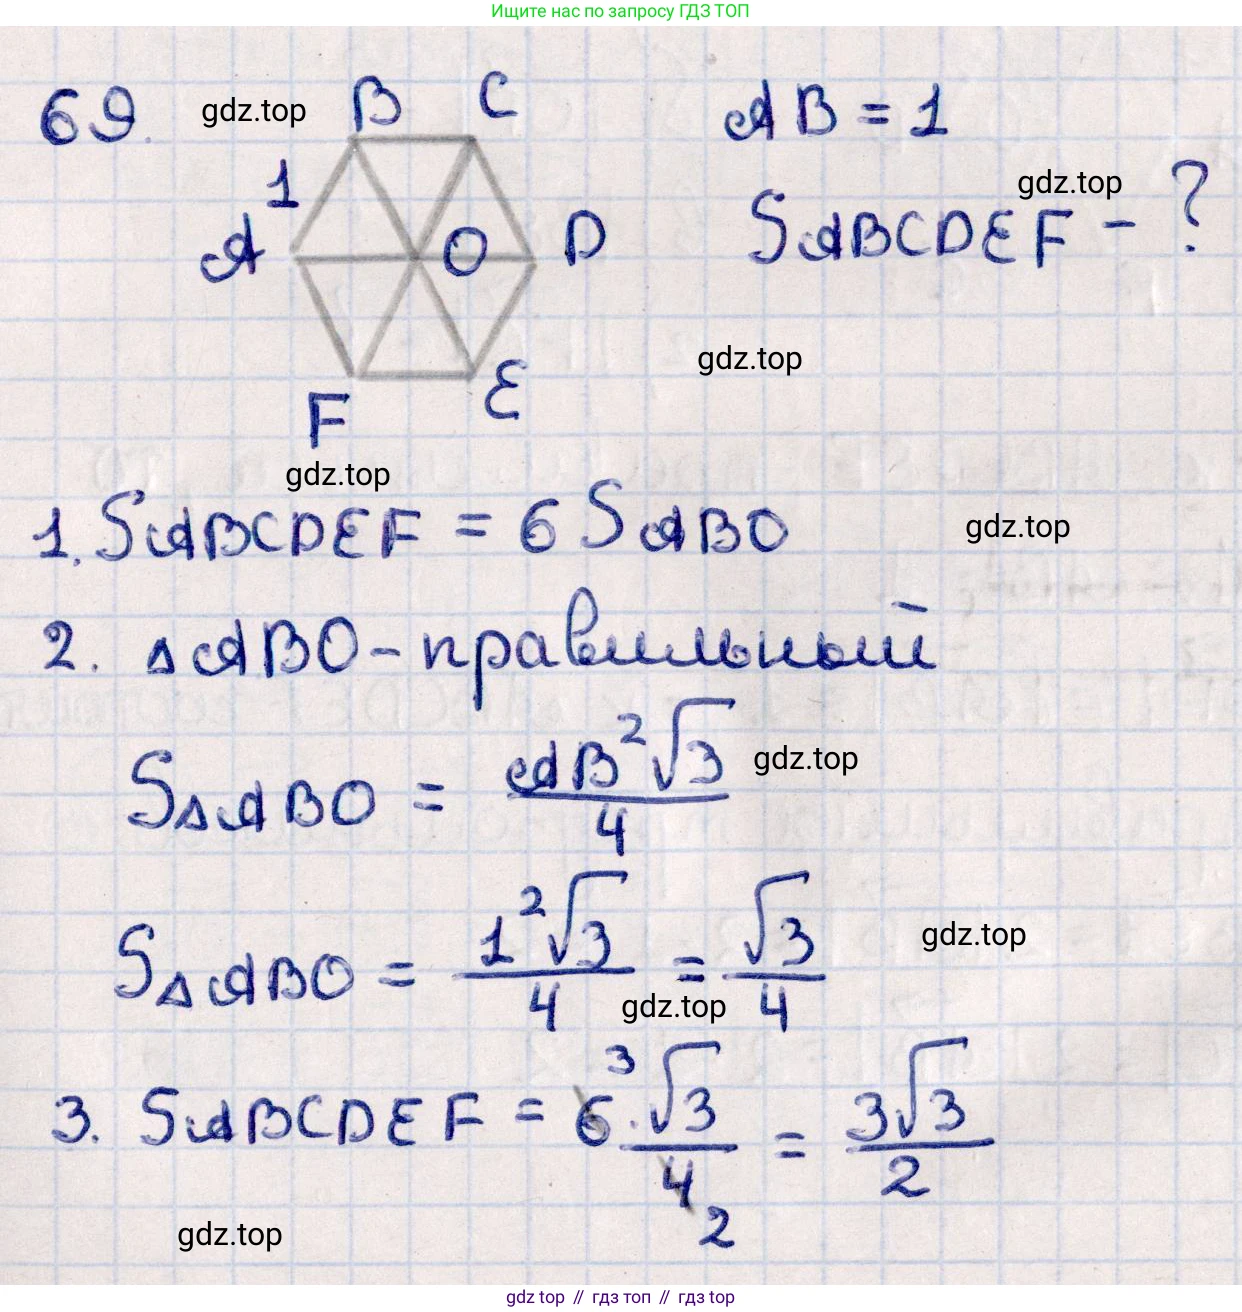 Ищите нас по запросу ГДЗ ТОП
69.
gdz.top
B C
AB = 1
1
gdz.top
A O D
SABCDEF - ?
gdz.top
F E
gdz.top
1. SABCDEF = 6 SABO
gdz.top
2. △ABO - правильный
S△ABO = AB²√3 / 4
gdz.top
S△ABO = 1²√3 / 4 = √3 / 4
gdz.top
gdz.top
3. SABCDEF = 6 ³ · √3 / 4 ₂ = 3√3 / 2
gdz.top
gdz top // гдз топ // гдз top